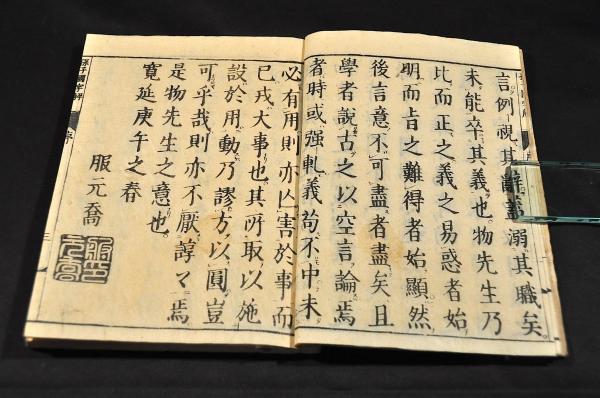 言例視其辭蓋溺其職矣
未能卒其義也物先生乃
比而正之義之易惑者始
明而旨之難得者始顯然
後言意不可盡者盡矣且
學者說古之以空言論焉
者時或强軋義苟不中未
必有用則亦凶害於事而
已戎大事也其所取以施
設於用動乃謬方以圓豈
可乎哉則亦不厭諄々焉
是物先生之意也
寬延庚午之春
服元喬
孫子國字解 序 三